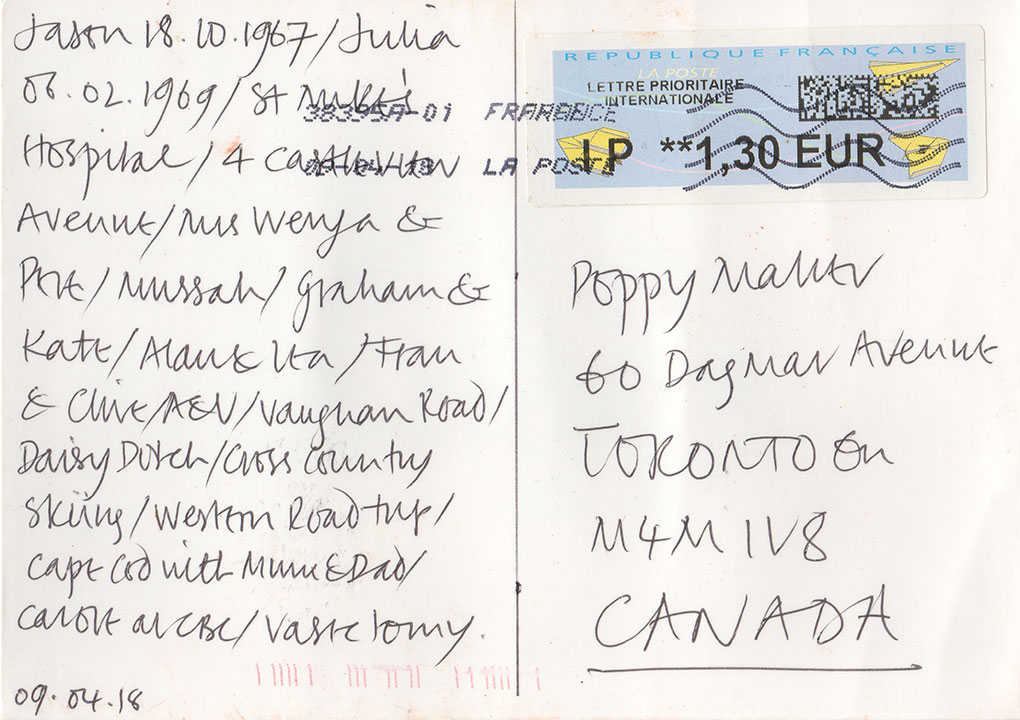 Jason 18.10.1967/Julia
06.02.1969/St Mike's
Hospital/4 Castleview
Avenue/Mrs Wenja &
Pete/Mussah/Graham &
Kate/Alan & Ita/Fran
& Clive/A&V/Vaughan Road/
Daisy Dutch/Cross country
skiing/Western Road trip/
Cape Cod with Mum & Dad/
Carole at CBC/Vasectomy.
09.04.18
38395A-01 FRANCE
LA POSTE
REPUBLIQUE FRANÇAISE
LA POSTE
LETTRE PRIORITAIRE
INTERNATIONALE
IP **1,30 EUR
Poppy
60 Dagmar Avenue
TORONTO On
M4M 1V8
CANADA